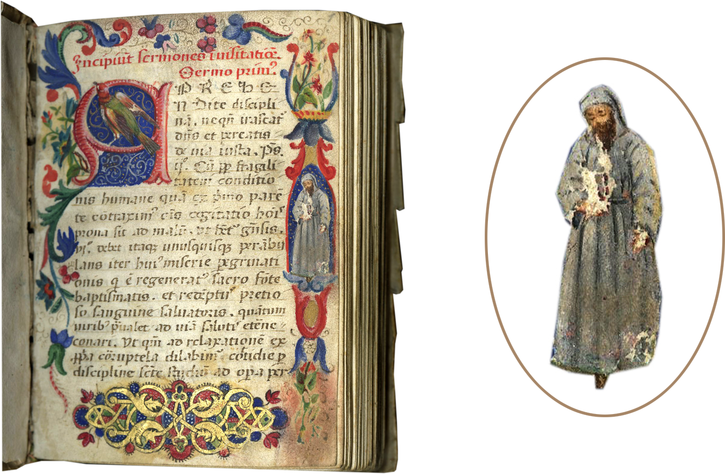 Incipiunt sermones ī uisitatiōe.
Sermo prim9.
APREHE
N Dite discipli
nā. nequn irascat
dn̄s et pereatis
de uia iusta. Ps.
fragili
tatem conditio
nis humane quā ex primo pare
te cōtraxim9 eius cogitatio hoīs
prona sit ad malū. ut hētur gn̄sis.
debet itaqz unusquisqz
lans iter hui9 miserie peregrinati
onis q̄ ē regenerat9 sacro fōte
baptismatis. et redēpt9 pretio
so sanguine saluatoris. quātum
uirib9 p̄ualet ad uiā saluti9 etēne
conari. Ut qm̄ ad relaxationē ex
ppa cōruptela dilabim9 cotidie p
discipline sctē studiū ad opa per